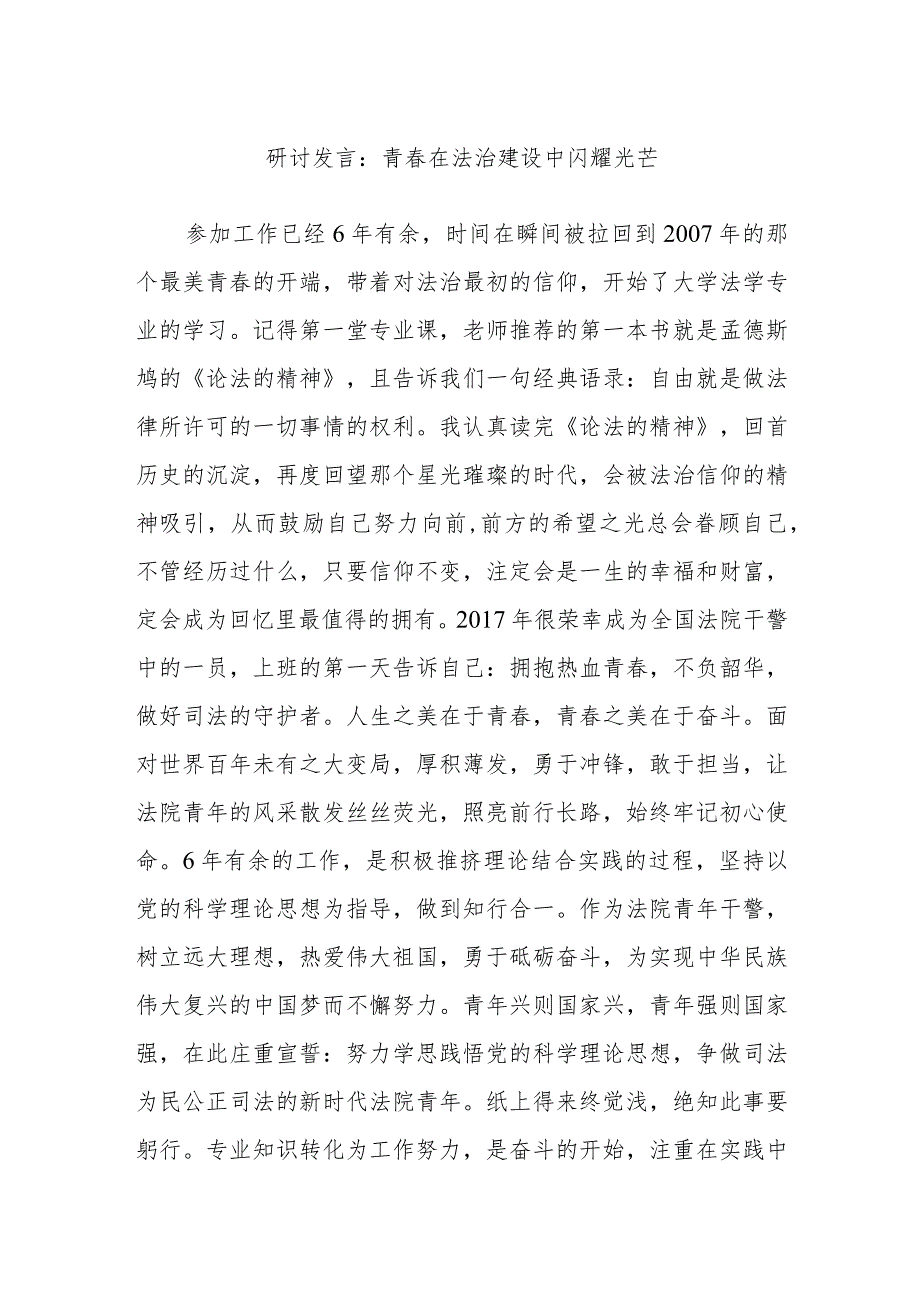 研讨发言：青春在法治建设中闪耀光芒
参加工作已经6年有余，时间在瞬间被拉回到2007年的那
个最美青春的开端，带着对法治最初的信仰，开始了大学法学专
业的学习。记得第一堂专业课，老师推荐的第一本书就是孟德斯
鸠的《论法的精神》，且告诉我们一句经典语录：自由就是做法
律所许可的一切事情的权利。我认真读完《论法的精神》，回首
历史的沉淀，再度回望那个星光璀璨的时代，会被法治信仰的精
神吸引，从而鼓励自己努力向前,前方的希望之光总会眷顾自己，
不管经历过什么，只要信仰不变，注定会是一生的幸福和财富，
定会成为回忆里最值得的拥有。2017年很荣幸成为全国法院干警
中的一员，上班的第一天告诉自己：拥抱热血青春，不负韶华，
做好司法的守护者。人生之美在于青春，青春之美在于奋斗。面
对世界百年未有之大变局，厚积薄发，勇于冲锋，敢于担当，让
法院青年的风采散发丝丝荧光，照亮前行长路，始终牢记初心使
命。6年有余的工作，是积极推挤理论结合实践的过程，坚持以
党的科学理论思想为指导，做到知行合一。作为法院青年干警，
树立远大理想，热爱伟大祖国，勇于砥砺奋斗，为实现中华民族
伟大复兴的中国梦而不懈努力。青年兴则国家兴，青年强则国家
强，在此庄重宣誓：努力学思践悟党的科学理论思想，争做司法
为民公正司法的新时代法院青年。纸上得来终觉浅，绝知此事要
躬行。专业知识转化为工作努力，是奋斗的开始，注重在实践中